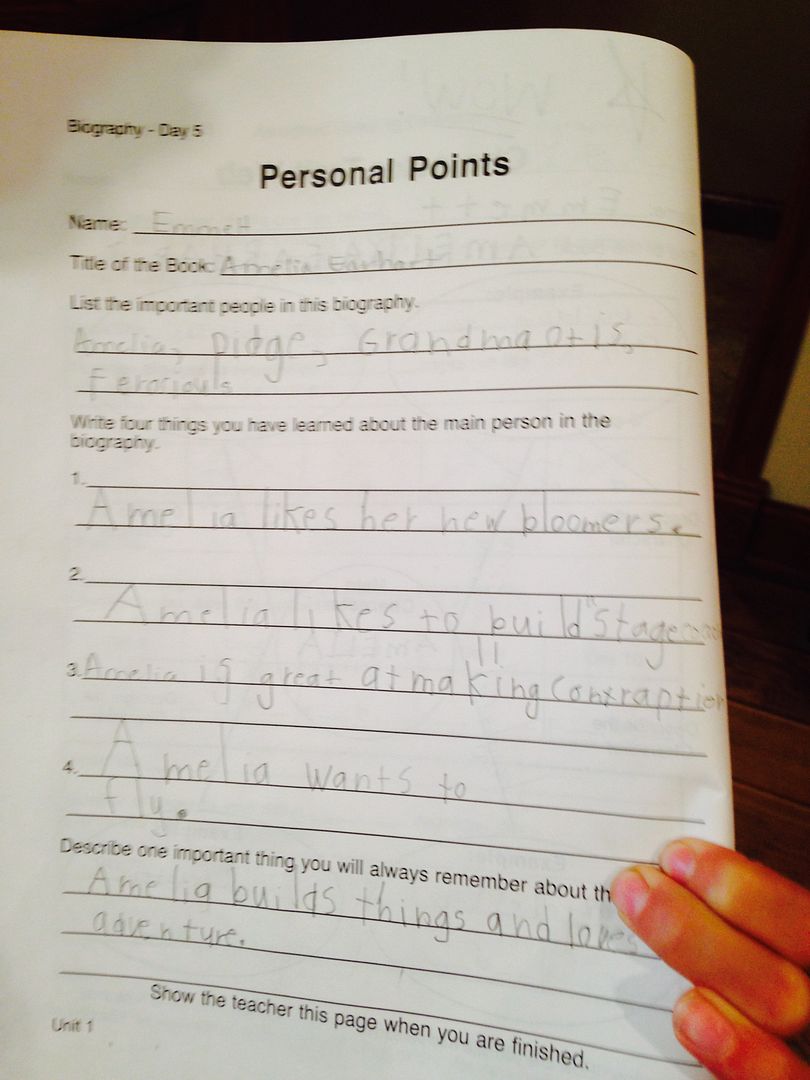 Biography - Day 5
Personal Points
Name: Emmett
Title of the Book: Amelia Earhart
List the important people in this biography.
Amelia, pidge, Grandma otis,
Ferocious
Write four things you have learned about the main person in the
biography.
1.
Amelia likes her new bloomers.
2.
Amelia likes to build "stage
3. Amelia is great at making Contraption
4. Amelia wants to
fly.
Describe one important thing you will always remember about
Amelia builds things and loves
adventure.
Show the teacher this page when you are finished.
Unit 1